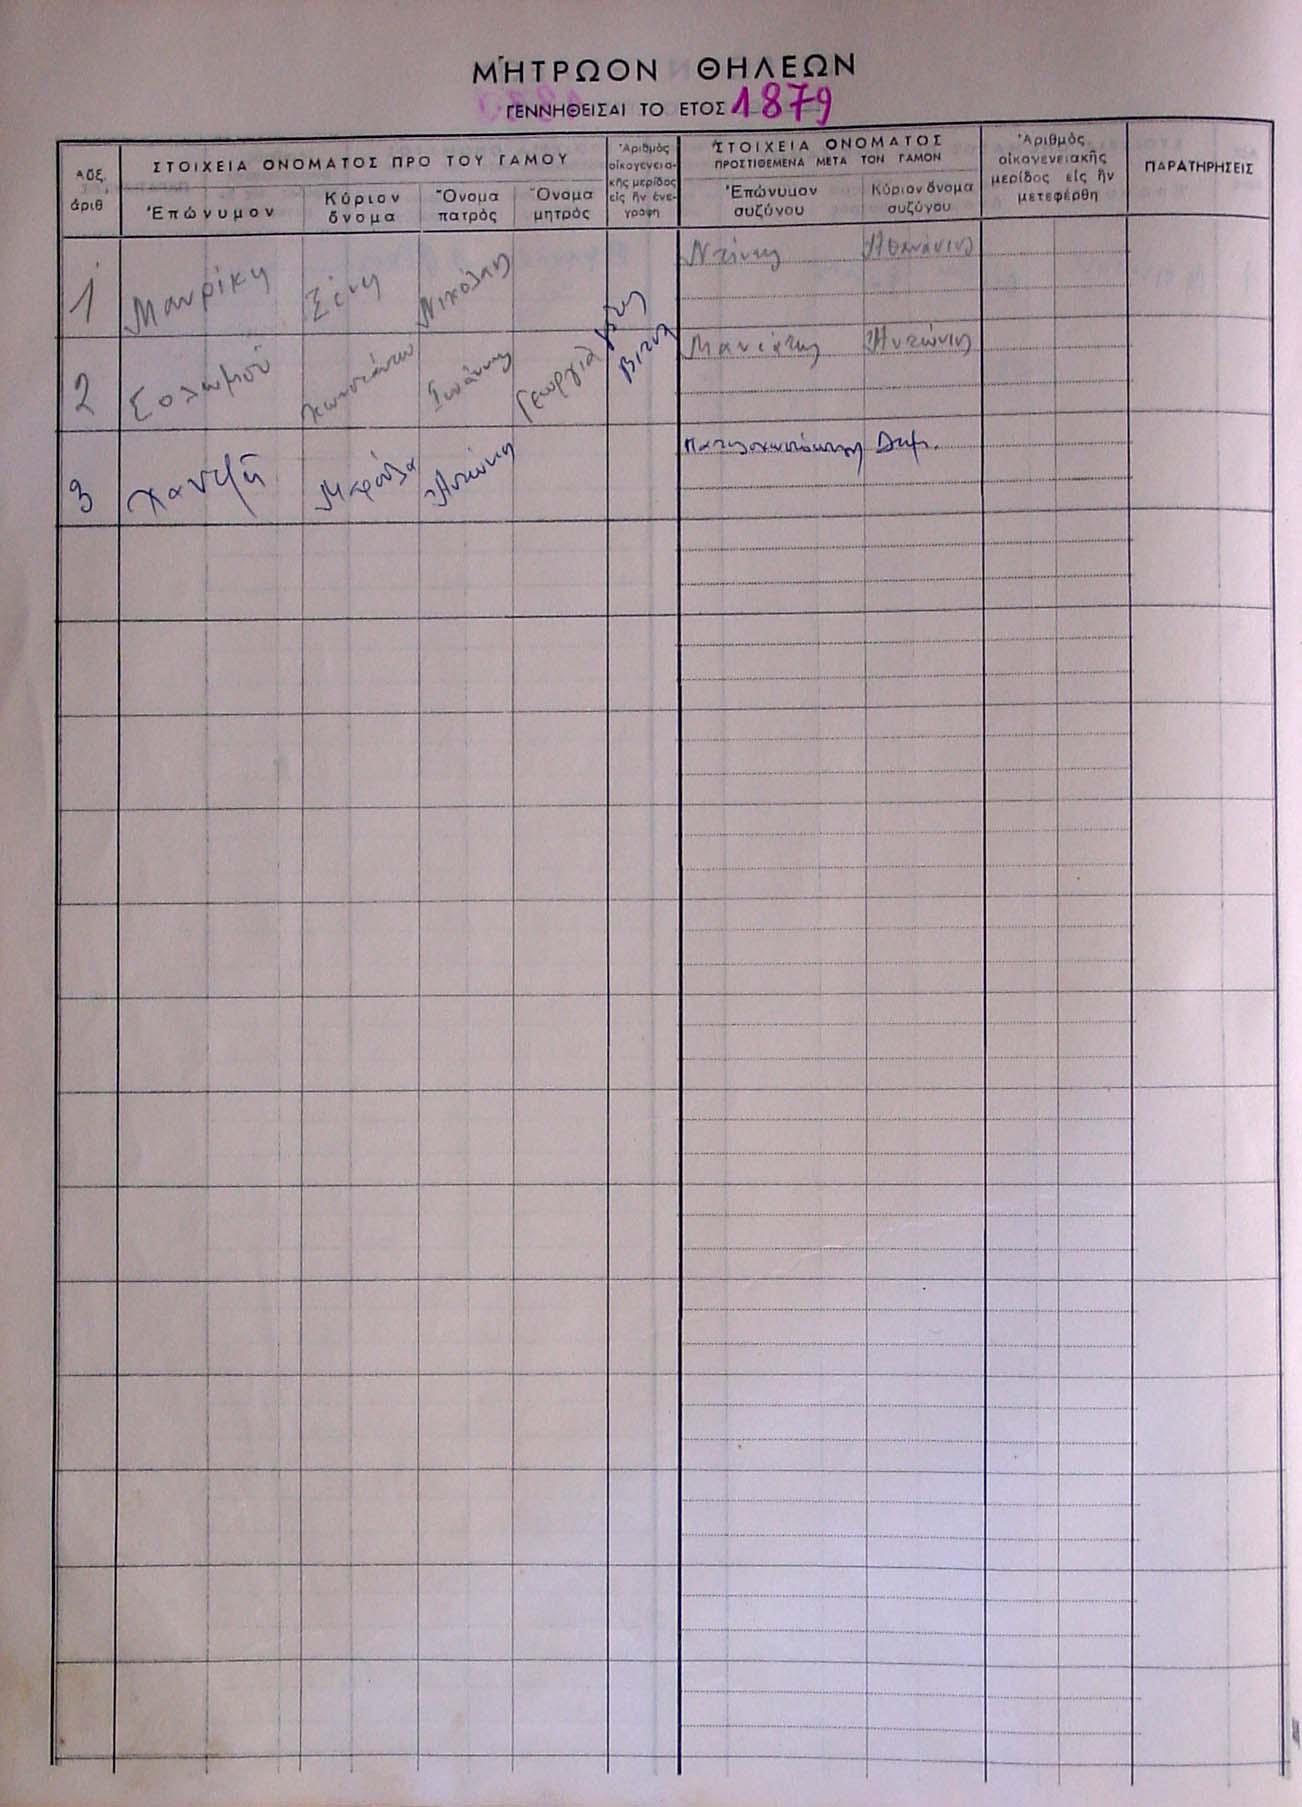 ΜΗΤΡΩΟΝ ΘΗΛΕΩΝ
ΓΕΝΝΗΘΕΙΣΑΙ ΤΟ ΕΤΟΣ 1879
Αὔξ. ἀριθ
ΣΤΟΙΧΕΙΑ ΟΝΟΜΑΤΟΣ ΠΡΟ ΤΟΥ ΓΑΜΟΥ
Ἐπώνυμον
Κύριον ὄνομα
Ὄνομα πατρός
Ὄνομα μητρός
Ἀριθμός οἰκογενεια-
κῆς μερίδος εἰς ἣν ἐνε-
γράφη
ΣΤΟΙΧΕΙΑ ΟΝΟΜΑΤΟΣ
ΠΡΟΣΤΙΘΕΜΕΝΑ ΜΕΤΑ ΤΟΝ ΓΑΜΟΝ
Ἐπώνυμον συζύγου
Κύριον ὄνομα συζύγου
Ἀριθμός οἰκογενειακῆς μερίδος εἰς ἣν μετεφέρθη
ΠΑΡΑΤΗΡΗΣΕΙΣ
1 Μαυρίκη Ξένη Νικόλαος Ἀθανάσιος
2 Σολωμοῦ Ἰωάννης Γεωργία Μανιάτης Ἀντώνιος
3 Μαρούλα Ἀντώνης Δημ.